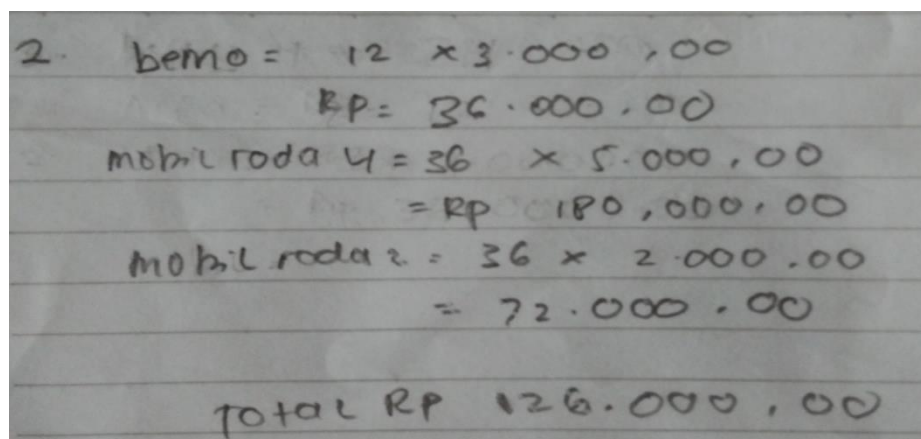 2. bemo = 12 × 3.000,00
Rp = 36.000.00
mobil roda 4 = 36 × 5.000,00
= Rp 180,000.00
mobil roda 2 = 36 × 2.000.00
= 72.000.00
Total Rp 126.000,00